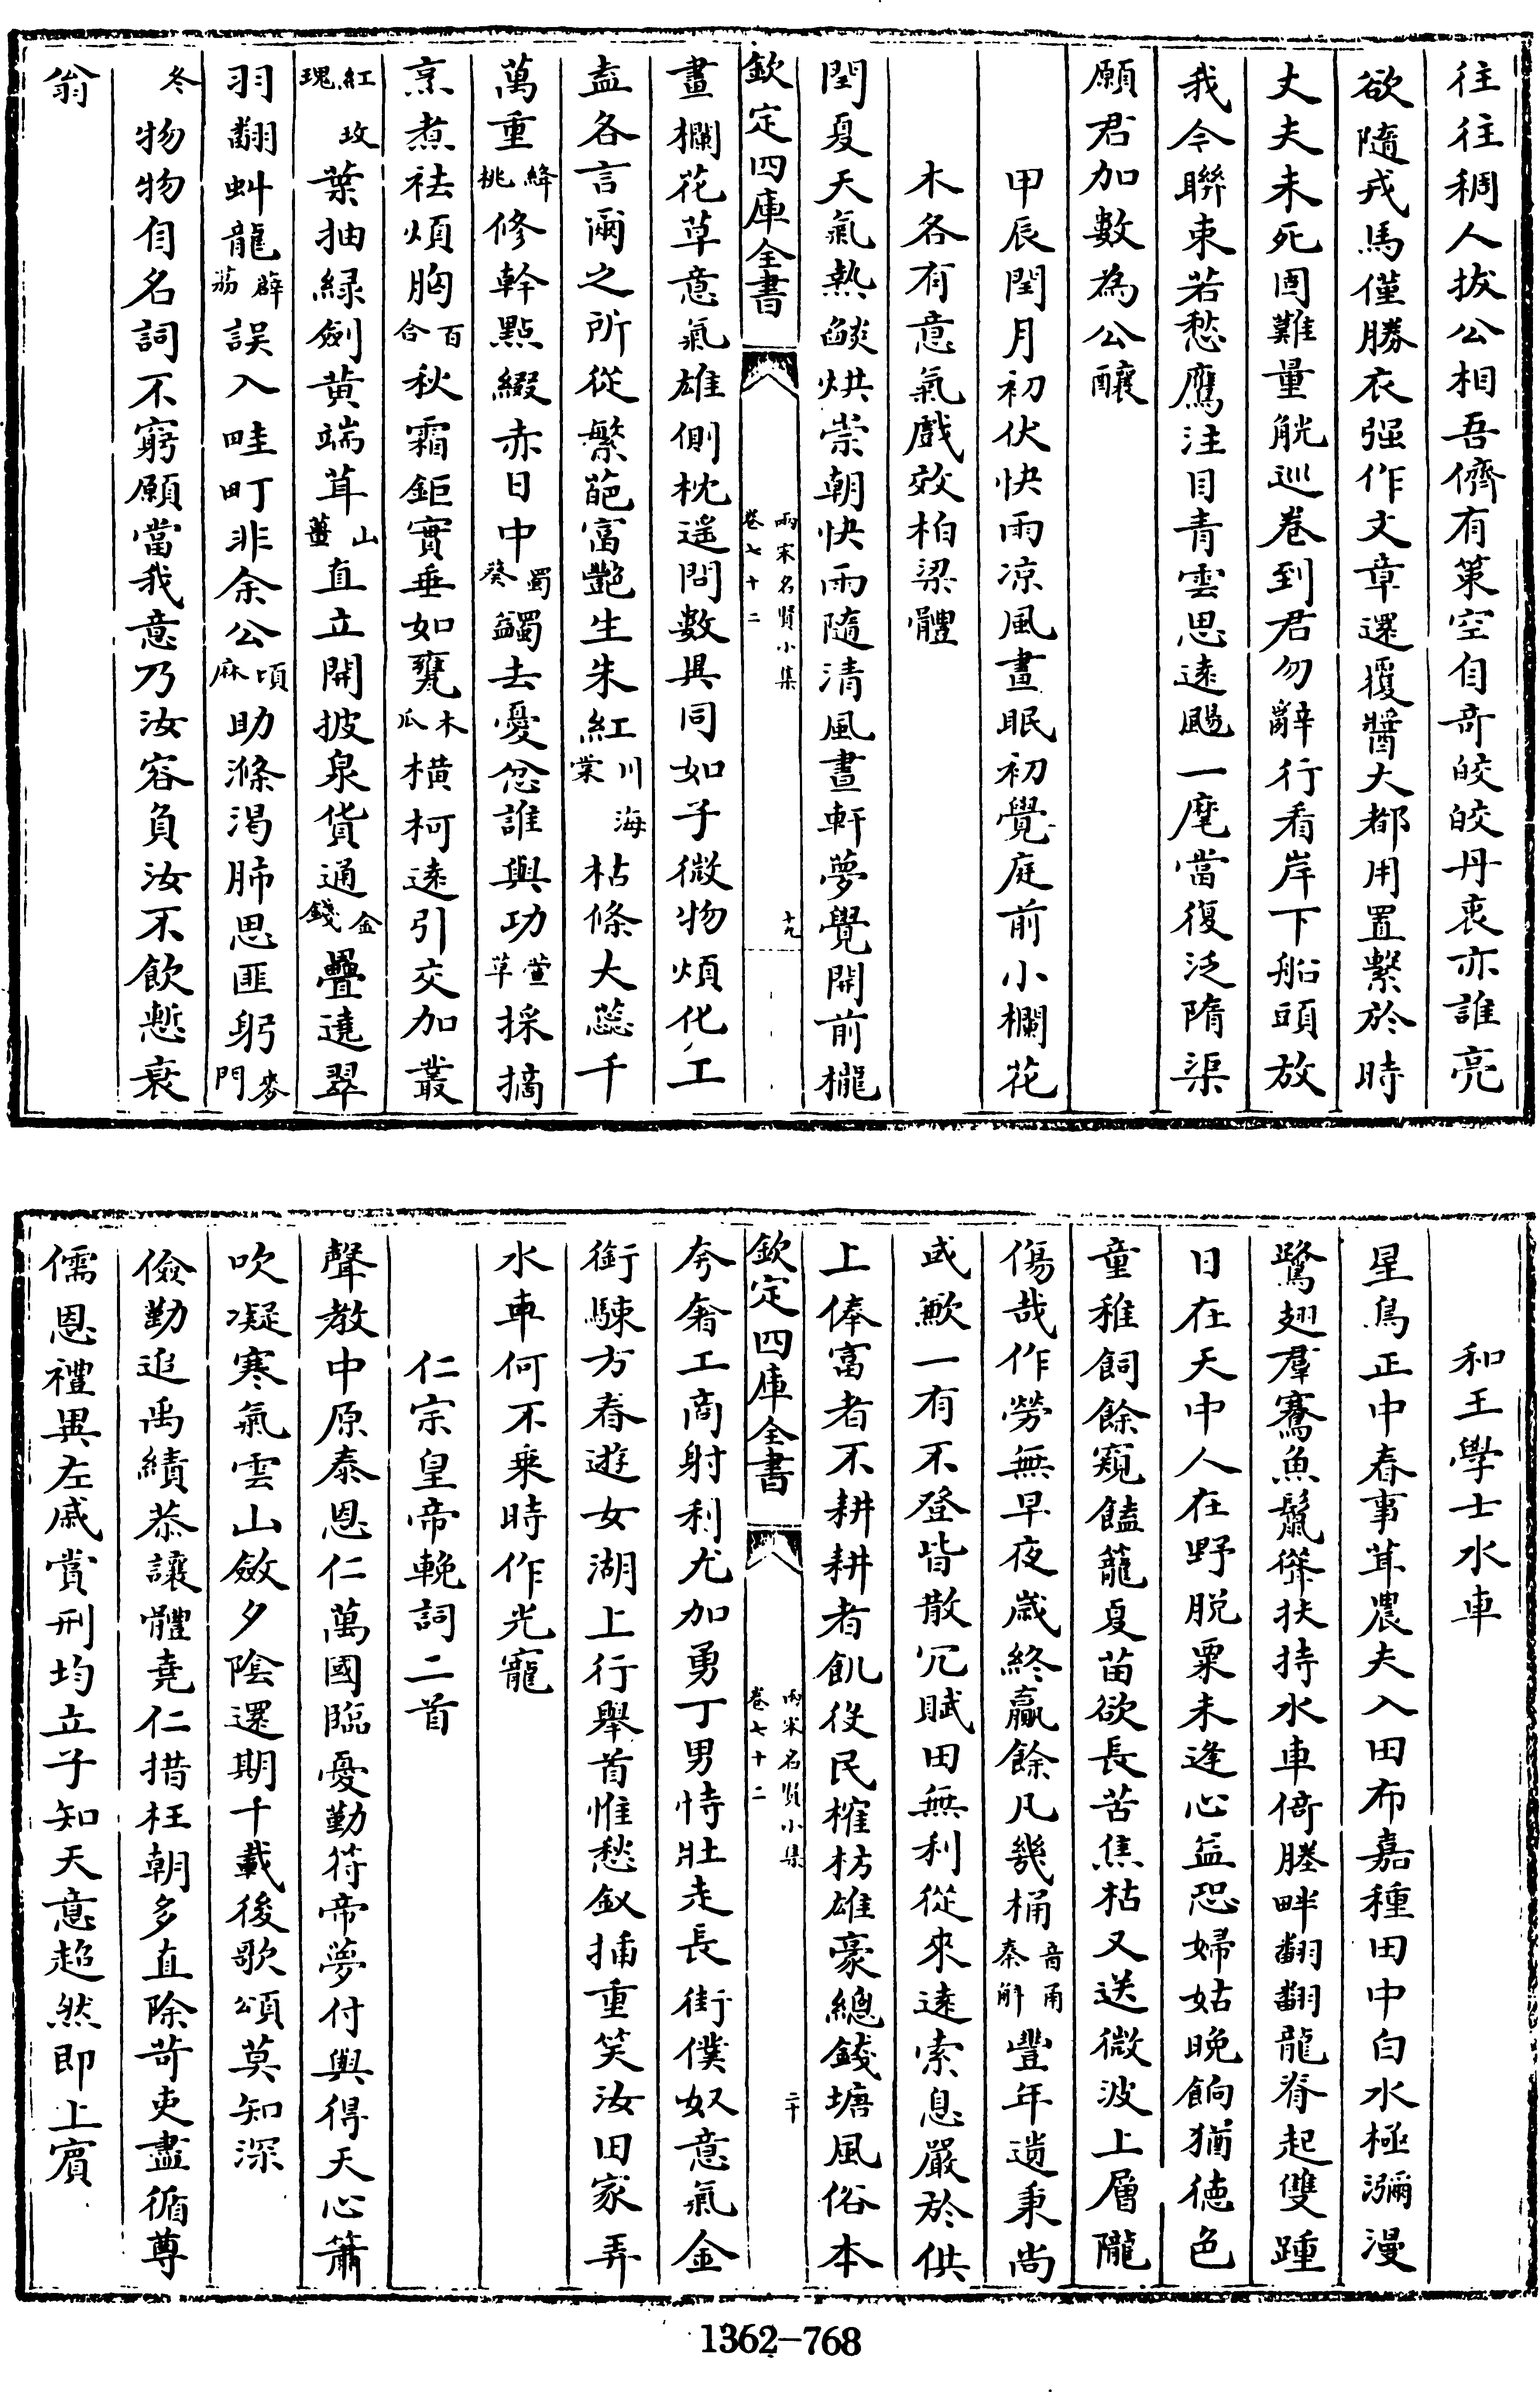 往往稠人拔公相吾儕有策空自奇皎皎丹衷亦誰亮
欲隨戎馬僅勝衣强作文章還覆醬大都用置繫於時
丈夫未死固難量觥巡卷到君勿辭行看岸下船頭放
我今聯束若愁鷹注目青雲思遠颺一麾當復泛隋渠
願君加數為公釀
甲辰閏月初伏快雨涼風晝眠初覺庭前小欄花
木各有意氣戲效柏梁體
閏夏天氣熱燄烘崇朝快雨隨清風晝軒夢覺開前櫳
欽定四庫全書
兩宋名賢小集
卷七十二
十九
畫欄花草意氣雄側枕遥問數具同如子微物煩化工
盍各言爾之所從繁葩富艷生朱紅川海棠枯條大蕊千
萬重絳桃修幹點綴赤日中蜀葵蠲去憂忿誰與功萱草採摘
烹煮祛煩胸百合秋霜鉅實垂如甕木瓜横柯遠引交加叢
紅玫瑰葉抽緑劍黄端茸山薑直立開披泉貨通金錢疊遶翠
羽翻虯龍薜荔誤入畦町非余公頃麻助滌渴肺思匪躬麥門
冬物物自名詞不窮願當我意乃汝容負汝不飲慙衰
翁
和王學士水車
星鳥正中春事茸農夫入田布嘉種田中白水極瀰漫
鷺翅羣騫魚鬛傑扶持水車倚塍畔翻翻龍脊起雙踵
日在天中人在野脱粟未逢心益恐婦姑晚餉猶德色
童稚飼餘窺饁籠夏苗欲長苦焦枯又送微波上層隴
傷哉作勞無早夜歲終贏餘凡幾桶音甬秦斛豐年遺秉尚
或歉一有不登皆散冗賦田無利從來遠索息嚴於供
上俸富者不耕耕者飢役民榷枋雄豪總錢塘風俗本
欽定四庫全書
兩宋名賢小集
卷七十二
二十
夸奢工商射利尤加勇丁男恃壯走長街僕奴意氣金
銜駷方春遊女湖上行舉首惟愁釵插重笑汝田家弄
水車何不乗時作光寵
仁宗皇帝輓詞二首
聲教中原泰恩仁萬國臨憂勤符帝夢付與得天心簫
吹凝寒氣雲山斂夕陰還期千載後歌頌莫知深
儉勤追禹績恭讓體堯仁措枉朝多直除苛吏盡循尊
儒恩禮異左戚賞刑均立子知天意超然即上賓
1362-768